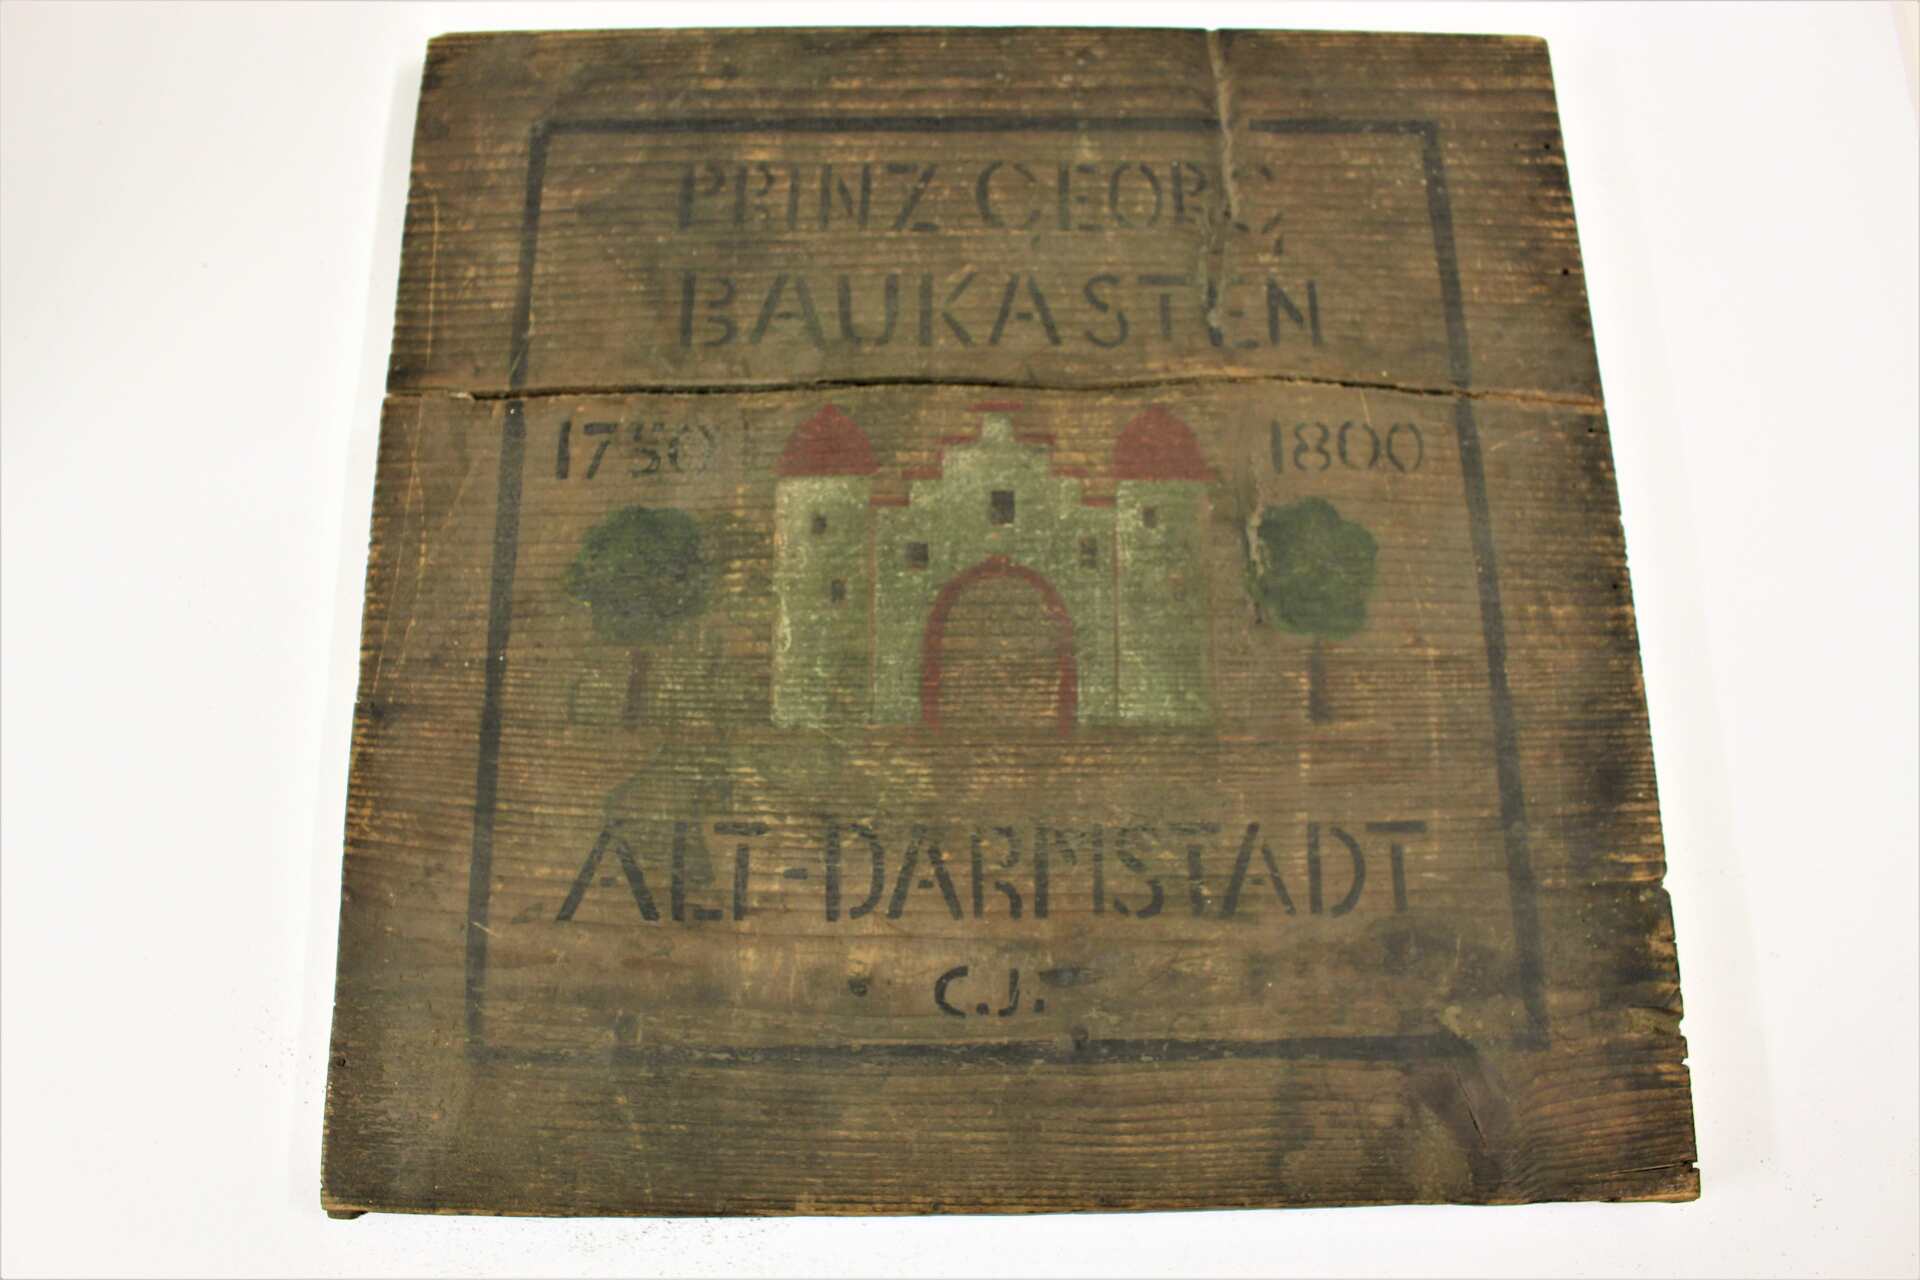 PRINZ GEORG
BAUKASTEN
1750 1800
ALT-DARMSTADT
C.J.